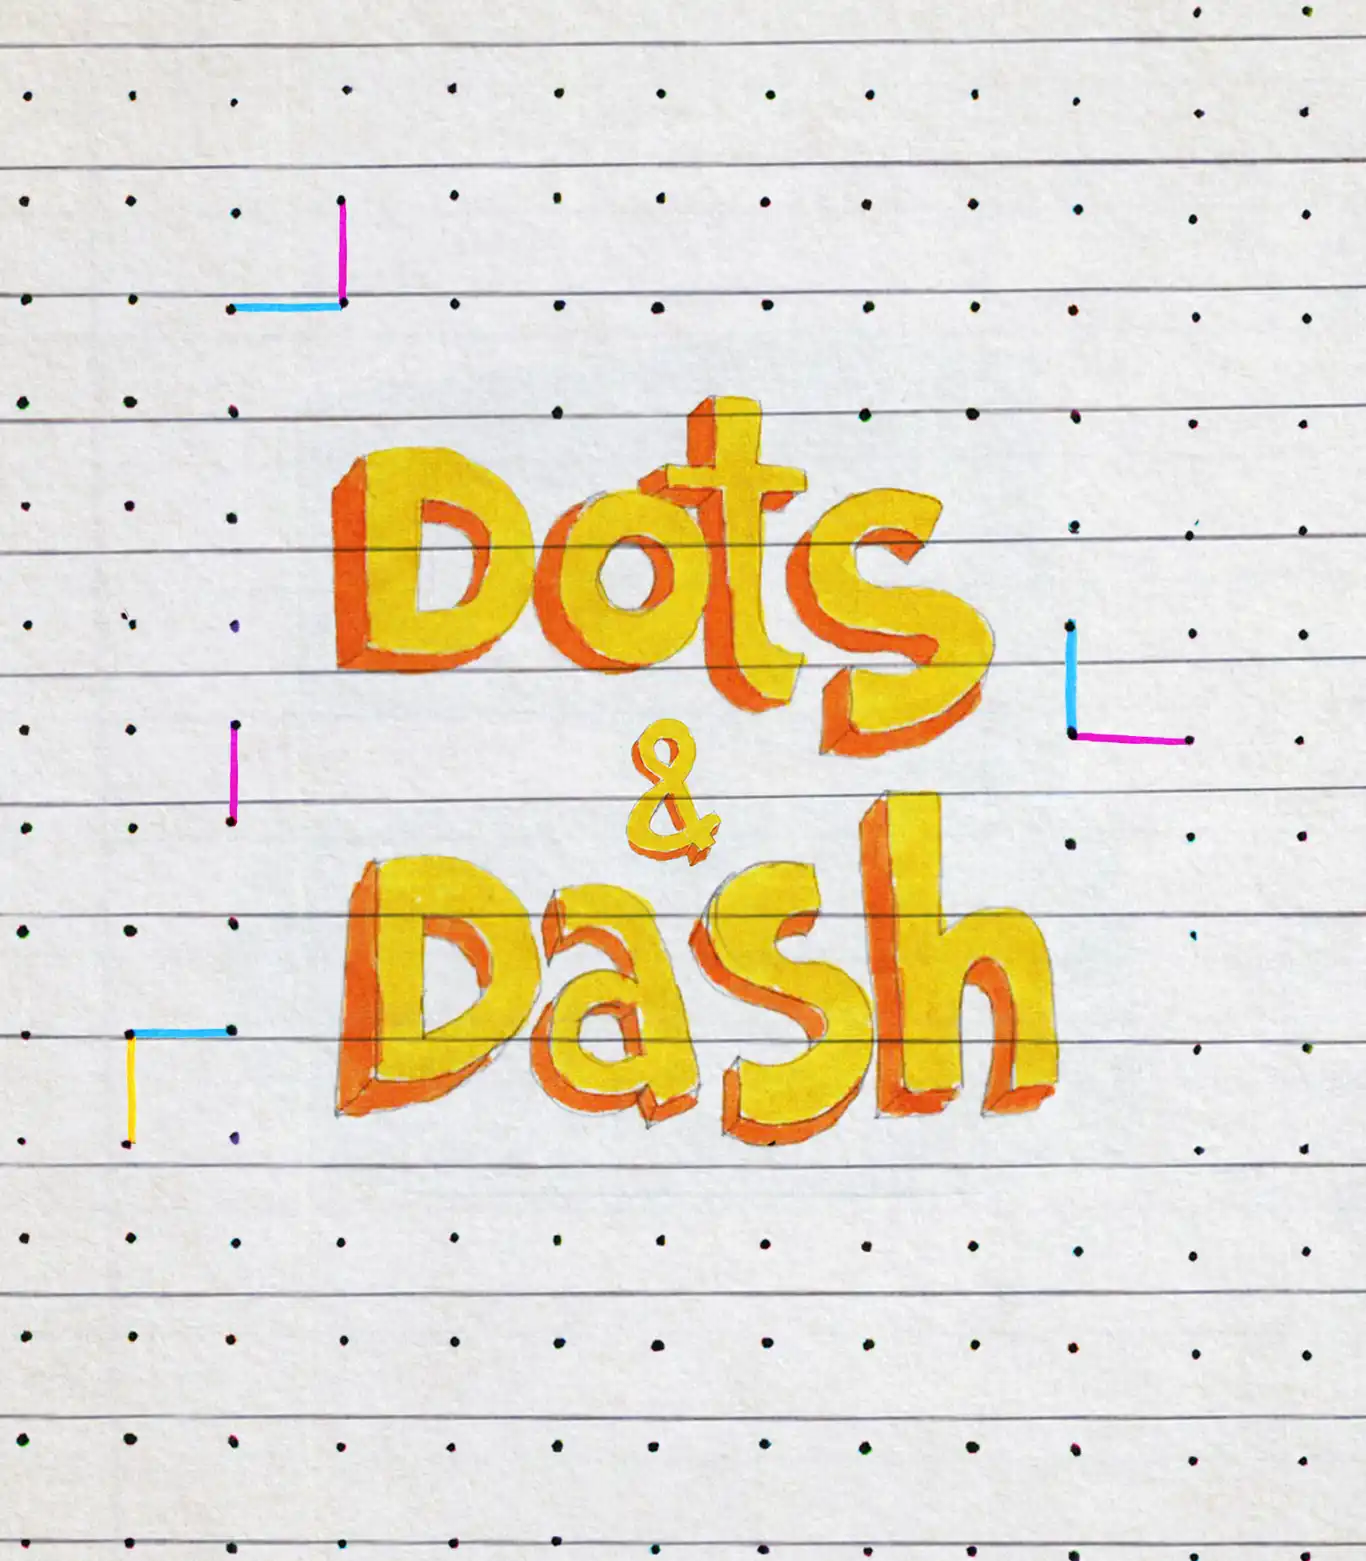 Dots
&
Dash